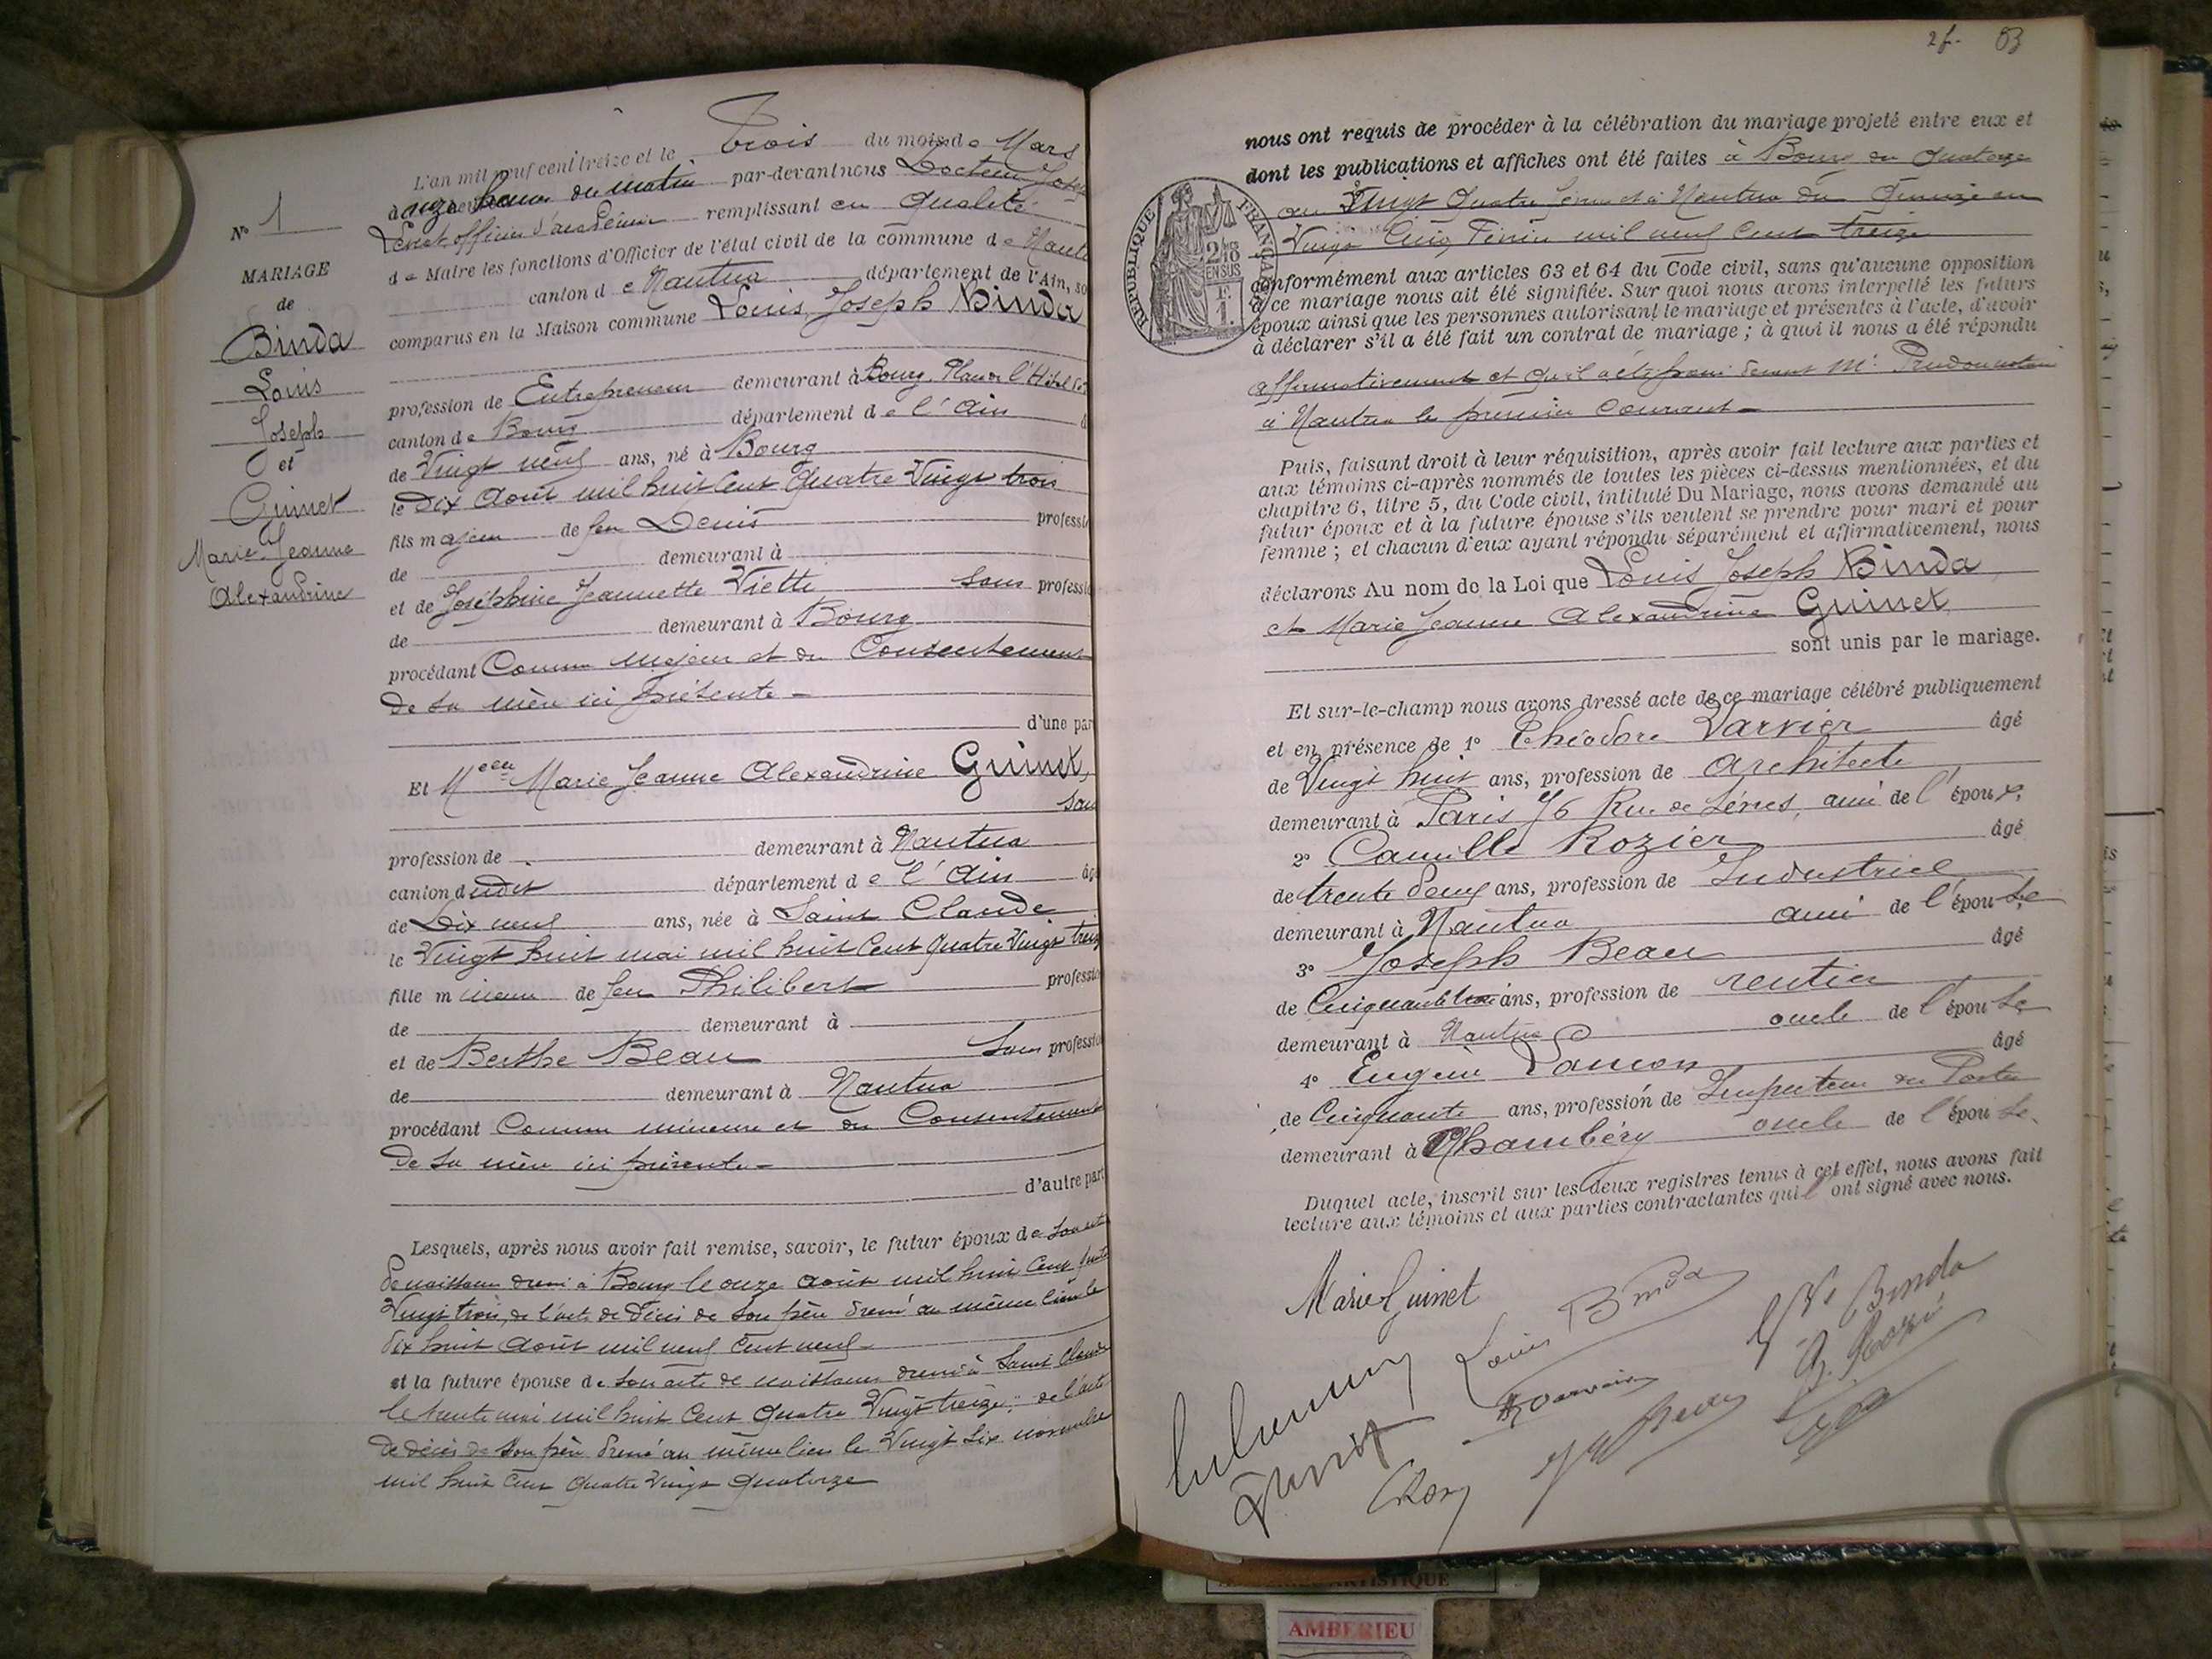 N° 1
MARIAGE
de
Binda
Louis
Joseph
et
Guinet
Marie Jeanne
Alexandrine
L'an mil neuf cent treize et le Trois du mois de Mars
à onze heures du matin par-devant nous Docteur
officier d'académie remplissant en qualité
de Maire les fonctions d'Officier de l'état civil de la commune de
canton de Nantua département de l'Ain,
comparus en la Maison commune Louis Joseph Binda
profession de Entrepreneur demeurant à Bourg Place de l'Hôtel
canton de Bourg département de l'Ain
de Vingt neuf ans, né à Bourg
le Dix Août mil huit cent quatre vingt trois
fils majeur de feu Denis
de demeurant à
et de Joséphine Jeannette Viette sans
de demeurant à Bourg
procédant Comme majeur et du Consentement
de sa mère ici présente
d'une part
Et Melle Marie Jeanne Alexandrine Guinet,
sans
profession de demeurant à Nantua
canton dudit département de l'Ain
de Dix neuf ans, née à Saint Claude
le Vingt huit mai mil huit cent quatre vingt treize
fille mineure de feu Philibert
de demeurant à
et de Berthe Beau Sans
de demeurant à Nantua
procédant Comme mineure et du Consentement
de sa mère ici présente
d'autre part
Lesquels, après nous avoir fait remise, savoir, le futur époux de son acte
de naissance dressé à Bourg le onze août mil huit cent quatre
vingt trois, de l'acte de décès de son père dressé au même lieu le
dix huit Août mil neuf cent neuf
et la future épouse de son acte de naissance dressé à Saint Claude
le trente mai mil huit cent quatre vingt treize; de l'acte
de décès de son père dressé au même lieu le vingt six novembre
mil huit cent quatre vingt quatorze
2 f. 83
nous ont requis de procéder à la célébration du mariage projeté entre eux et
dont les publications et affiches ont été faites à Bourg du quatorze
au Vingt quatre février et à Nantua du quinze au
Vingt cinq Février mil neuf cent treize
RÉPUBLIQUE FRANÇAISE
2/10
EN SUS
1 F.
conformément aux articles 63 et 64 du Code civil, sans qu'aucune opposition
à ce mariage nous ait été signifiée. Sur quoi nous avons interpellé les futurs
époux ainsi que les personnes autorisant le mariage et présentes à l'acte, d'avoir
à déclarer s'il a été fait un contrat de mariage ; à quoi il nous a été répondu
affirmativement et qu'il a été passé devant Me Prudon notaire
à Nantua le premier Courant
Puis, faisant droit à leur réquisition, après avoir fait lecture aux parties et
aux témoins ci-après nommés de toutes les pièces ci-dessus mentionnées, et du
chapitre 6, titre 5, du Code civil, intitulé Du Mariage, nous avons demandé au
futur époux et à la future épouse s'ils veulent se prendre pour mari et pour
femme ; et chacun d'eux ayant répondu séparément et affirmativement, nous
déclarons Au nom de la Loi que Louis Joseph Binda
et Marie Jeanne Alexandrine Guinet
sont unis par le mariage.
Et sur-le-champ nous avons dressé acte de ce mariage célébré publiquement
et en présence de 1° Théodore Varvier âgé
de Vingt huit ans, profession de Architecte
demeurant à Paris 76 Rue de Sèvres, ami de l'époux,
2° Camille Rozier âgé
de trente deux ans, profession de Industriel
demeurant à Nantua ami de l'épouse
3° Joseph Beau âgé
de Cinquante trois ans, profession de rentier
demeurant à Nantua oncle de l'épouse
4° Eugène Lançon âgé
de Cinquante ans, profession de Inspecteur des Postes
demeurant à Chambéry oncle de l'épouse
Duquel acte, inscrit sur les deux registres tenus à cet effet, nous avons fait
lecture aux témoins et aux parties contractantes qui ont signé avec nous.
Marie Guinet
Louis Binda
Vve Binda
AMBERIEU